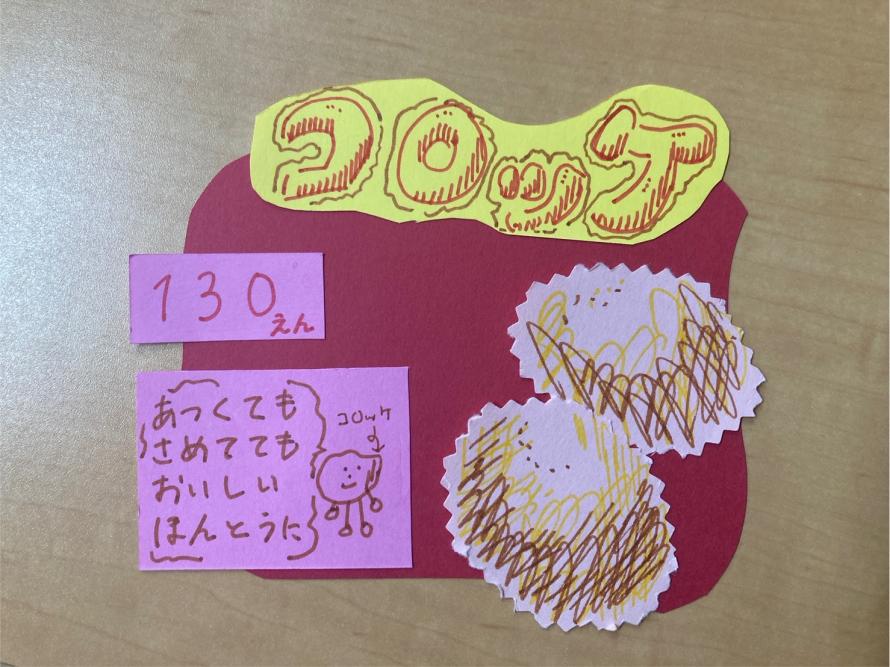 コロッケ
130えん
あつくても
さめてても
おいしい
ほんとうに
コロッケ